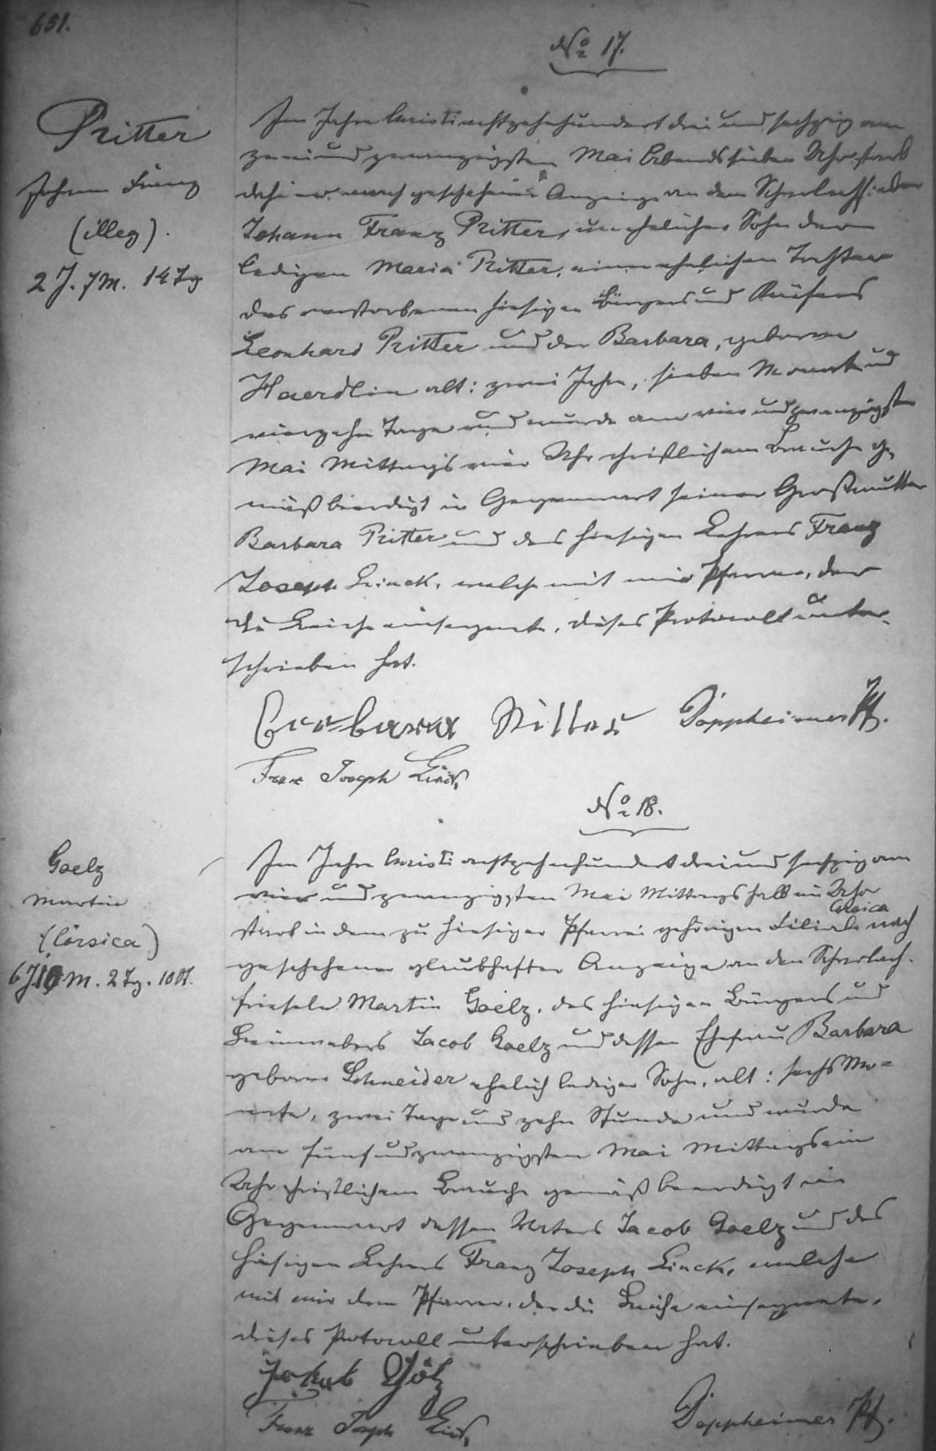 631.
No 17.
Ritter
Johann Franz
(illeg).
2 J. 7 M. 14 Tg
Im Jahre Christi achtzehnhundert drei und sechzig am
zwei und zwanzigsten Mai Abends sieben Uhr starb
dahier nach geschehener Anzeige an dem
Johann Franz Ritter, unehelicher Sohn der
ledigen Maria Ritter, einer ehelichen Tochter
des verstorbenen hiesigen Bürgers und Küfers
Leonhard Ritter und der Barbara, geborene
Haerdlin alt: zwei Jahre, sieben Monate und
vierzehn Tage und wurde am vier und zwanzigsten
Mai Mittags vier Uhr christlichem Brauche ge
mäß beerdigt in Gegenwart seiner Großmutter
Barbara Ritter und des hiesigen Lehrers Franz
Joseph Linck, welche mit mir Pfarrer, der
die Leiche einsegnete, dieses Protocoll unter-
schrieben hat.
Barbara Ritter Doppheimer Pf.
Franz Joseph Linck
No 18.
Goelz
Martin
(Corsica)
M. 2 Tg. 10 St.
Im Jahre Christi achtzehnhundert drei und sechzig am
vier und zwanzigsten Mai Mittags halb ein Uhr
Corsica
starb in dem zu hiesiger Pfarrei gehörigen Filiale nach
geschehener glaubhafter Anzeige an den Scharlach-
friesele Martin Goelz, des hiesigen Bürgers und
Leinwebers Jacob Goelz und dessen Ehefrau Barbara
geborene Schneider ehelich lediger Sohn, alt: sechs Mo-
nate, zwei Tage und zehn Stunde und wurde
am fünf und zwanzigsten Mai Mittags ein
Uhr christlichem Brauche gemäß beerdigt in
Gegenwart dessen Vaters Jacob Goelz und des
hiesigen Lehrers Franz Joseph Linck, welche
mit mir dem Pfarrer, der die Leiche einsegnete,
dieses Protocoll unterschrieben hat.
Jakob Gölz
Franz Joseph Linck Doppheimer Pf.